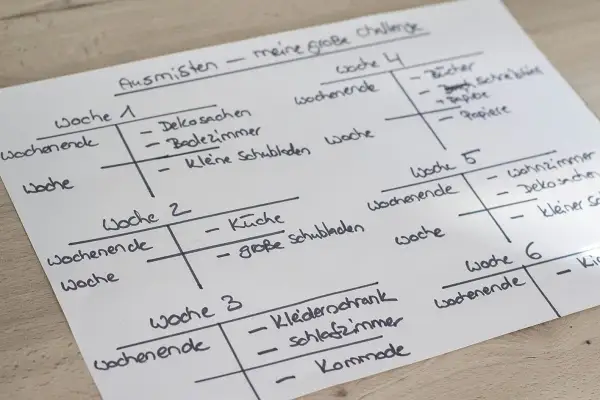 Ausmisten – meine große Challenge
Woche 1
Wochenende
– Dekosachen
– Badezimmer
Woche
– Kleine Schubladen
Woche 2
Wochenende
– Küche
Woche
– große Schubladen
Woche 3
Wochenende
– Kleiderschrank
– Schlafzimmer
– Kommode
Woche 4
Wochenende
– Bücher
– Papiere
Woche
– Papiere
Woche 5
Wochenende
– Wohnzimmer
– Dekosachen
Woche
– kleiner
Woche 6
Wochenende